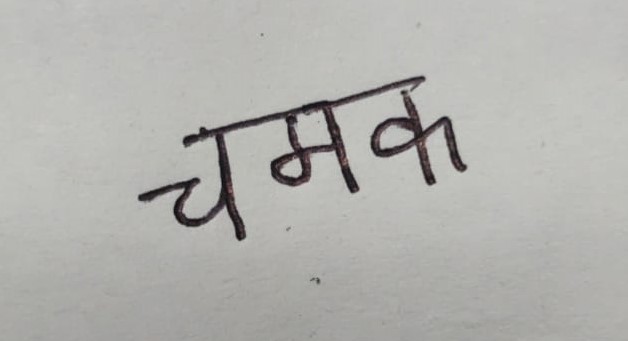 चमक